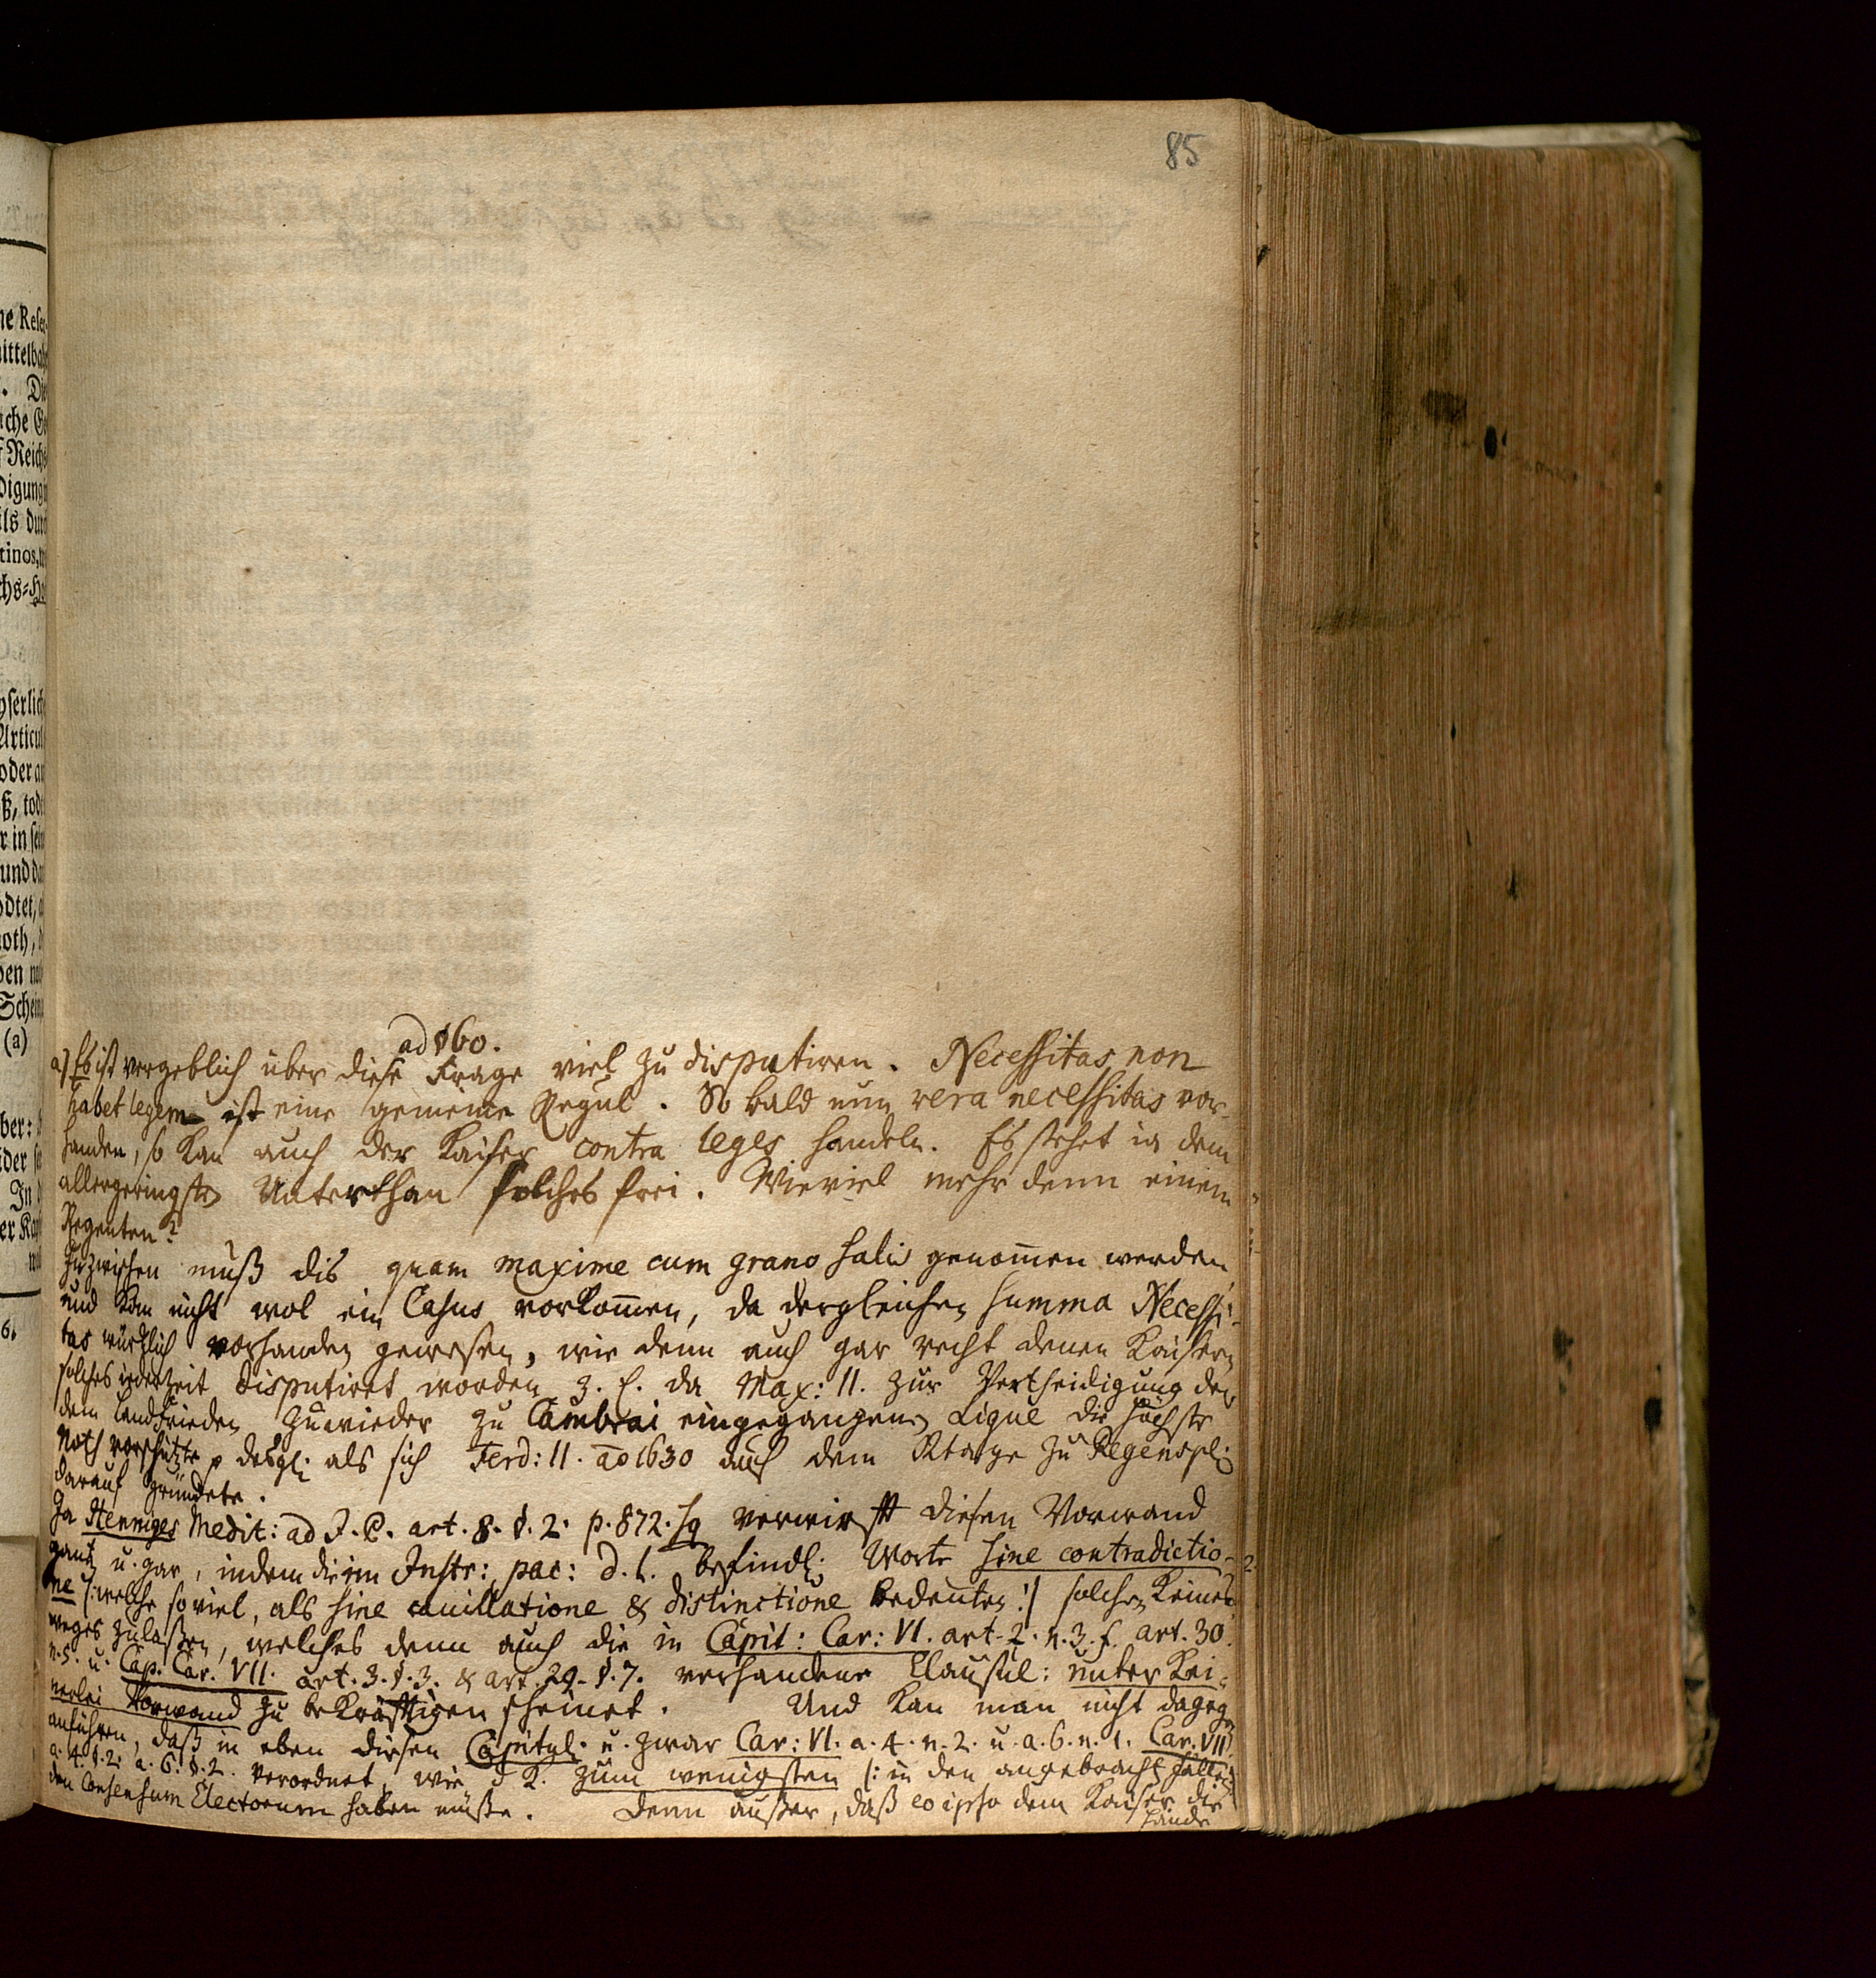 85
ad § 60.
a) Es ist vergeblich über diese Frage viel zu disputiren. Necessitas non
habet legem ist eine gemeine Regul. So bald nun vera necessitas vor-
handen, so kan auch der Kaiser contra leges handeln. Es stehet ia dem
allergeringsten Unterthan solches frei. Wieviel mehr denn einem
Regenten?
Inzwischen muß dis quam maxime cum grano salis genom̄en werden,
und kan nicht wol ein Casus vorkom̄en, da dergleichen summa Necessi-
tas würklich vorhanden gewesen, wie denn auch gar recht denen Kaisern
solches iederzeit disputiret worden z. E. da Max: II. zur Vertheidigung der
dem Landfrieden zuwieder zu Cambrai eingegangenen Ligue die höchste
Noth vorschützte p desgl: als sich Ferd: II. ao 1630 auf dem Rtage zu Regenspl:
darauf gründete.
Ja Henniges Medit: ad I. P. art. 8. §. 2. p. 872. sq verwirft diesen Vorwand
gantz u. gar, indem die im Instr: pac: d. l. befindl: Worte sine contradictio-
ne /: welche so viel, als sine cauillatione & distinctione bedeuten :/ solchen keines-
weges zulaßen, welches denn auch die in Capit: Car: VI. art. 2. n. 3. f. art. 30.
n. 5. u. Cap. Car. VII. art. 3. §. 3. & art. 29. §. 7. vorhandene Clausul: unter kei-
nerlei Vorwand zu bekräftigen scheinet. Und kan man nicht dageg.
anführen, daß in eben diesen Capitul. u. zwar Car: VI. a. 4. n. 2. u. a. 6. n. 1. Car. VII.
a. 4. §. 2. a. 6. §. 2. verordnet, wie d K. zum wenigsten /: in den angebracht fällen :/
den Consensum Electorum haben müße. Denn außer, daß eo ipso dem Kaiser die
Hände